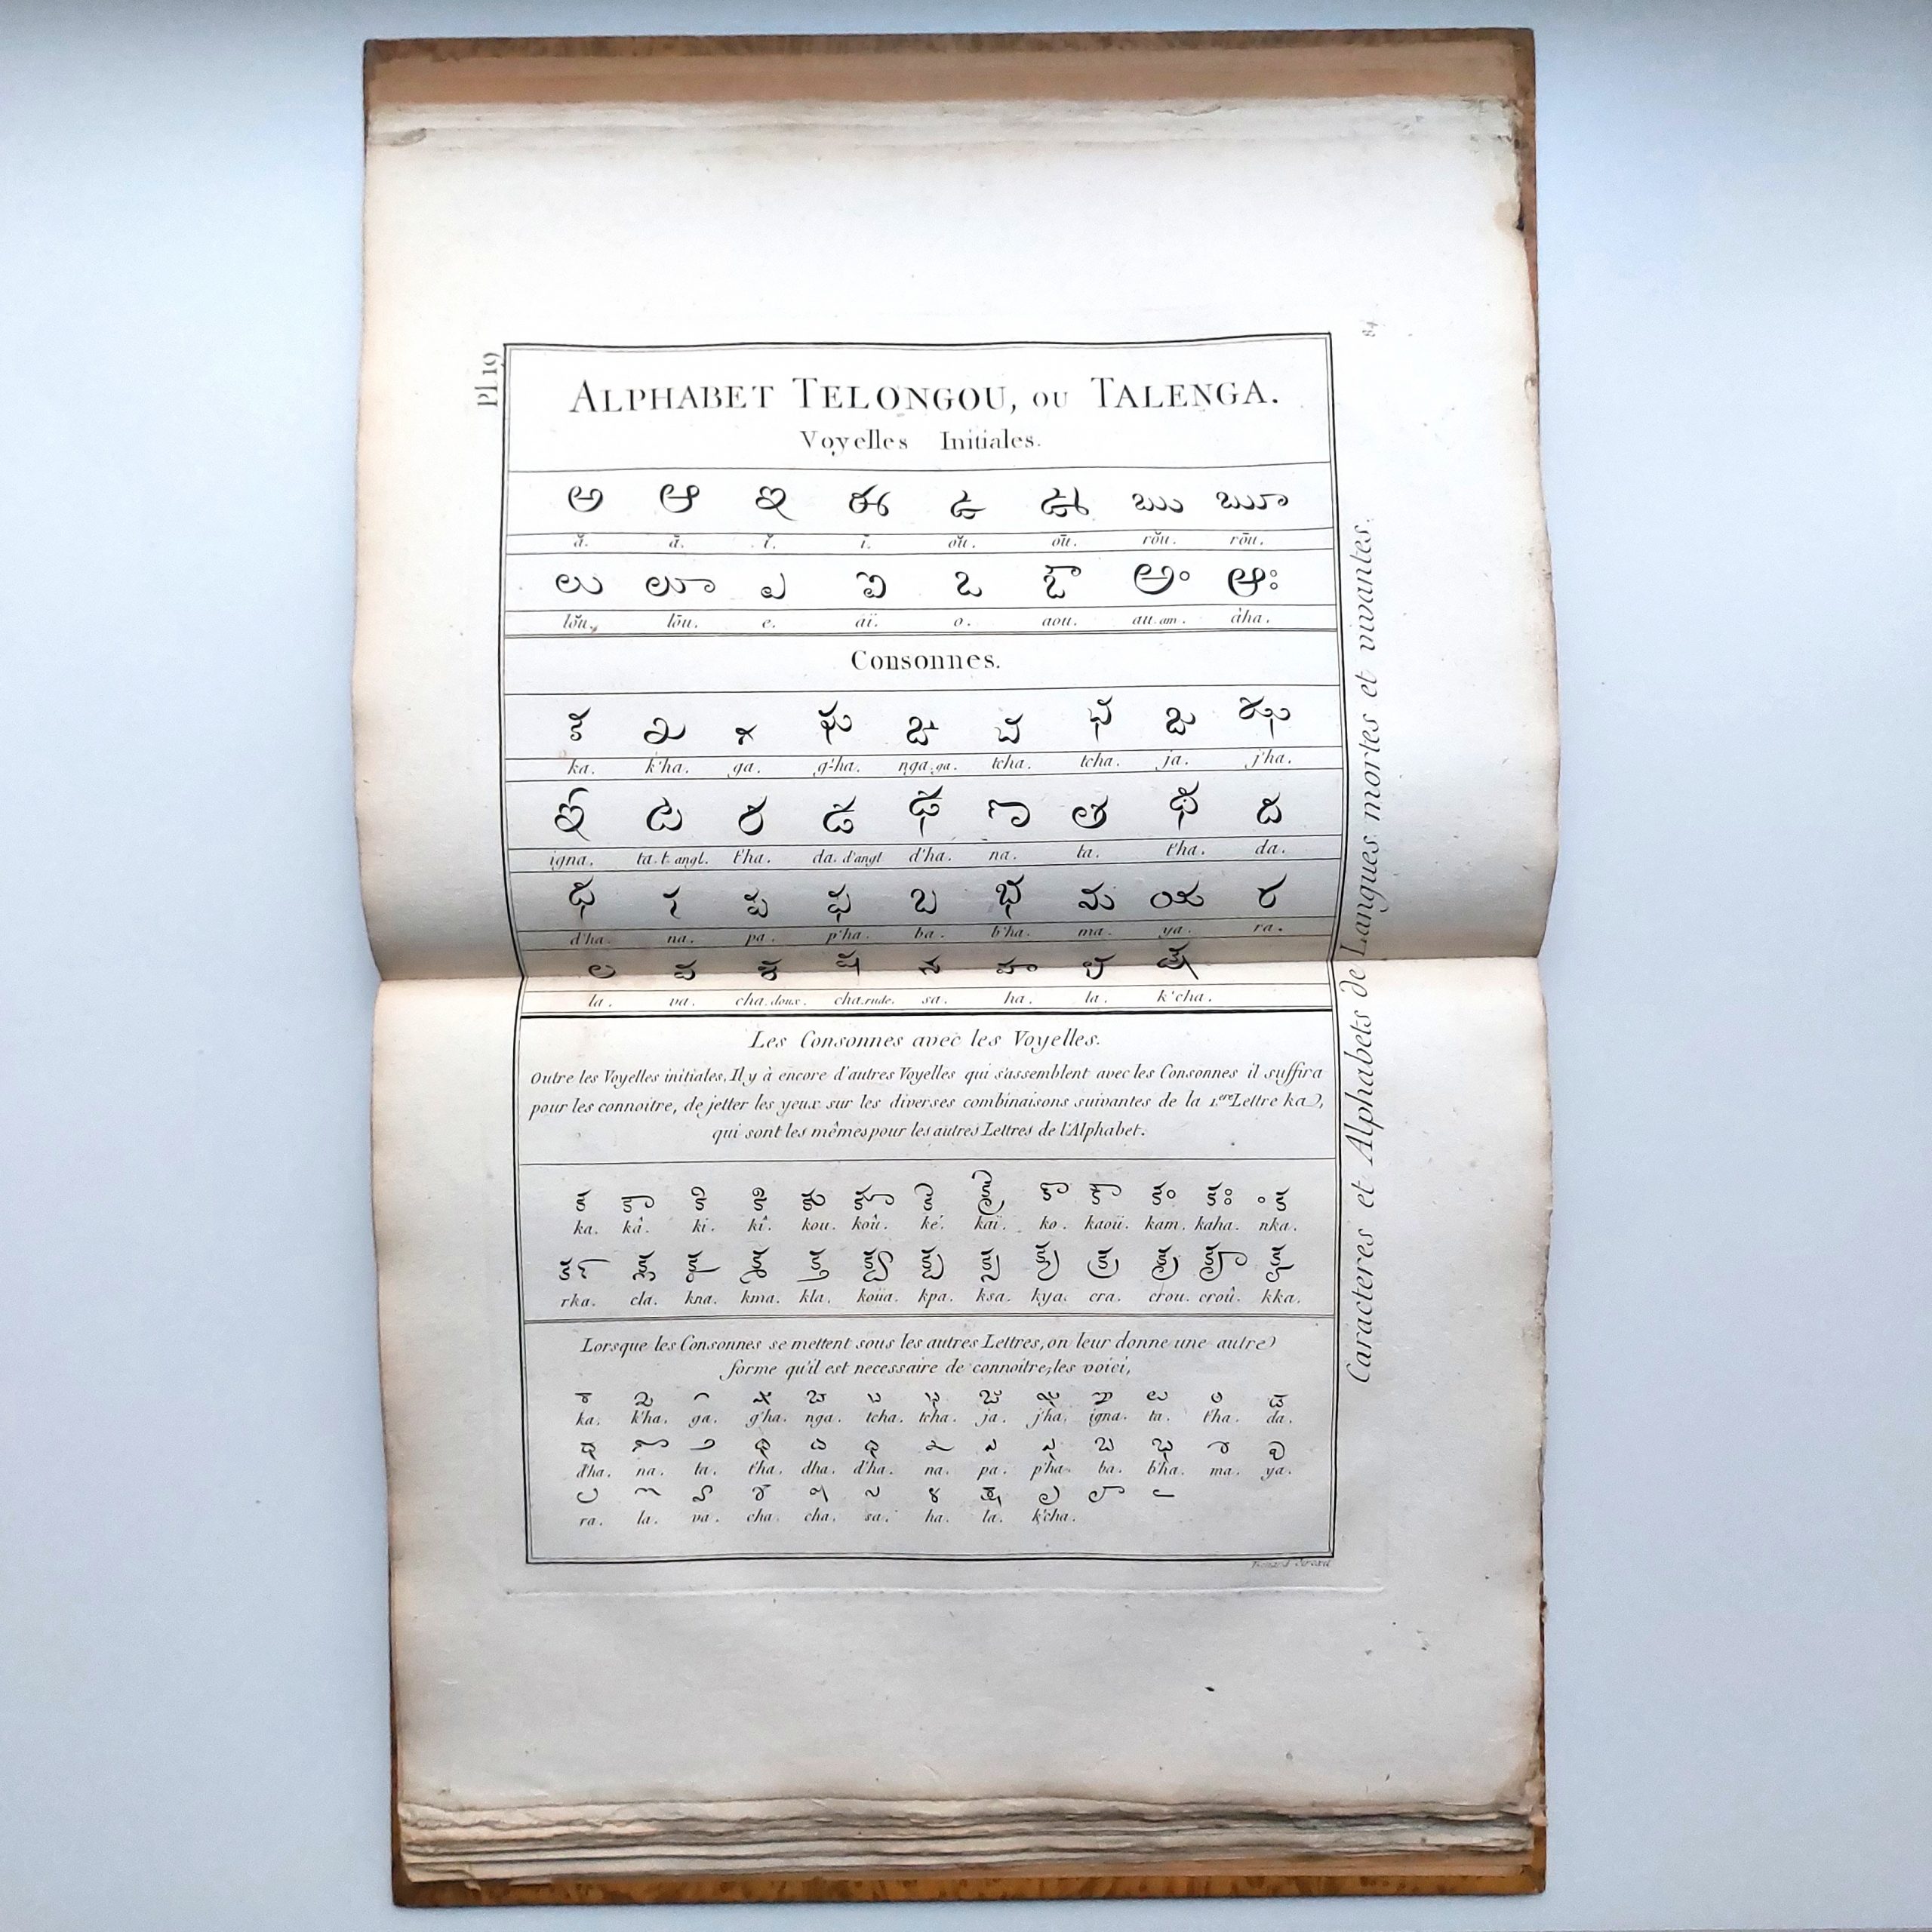 Pl 19
84
ALPHABET TELONGOU, OU TALENGA.
Voyelles Initiales.
అ ఆ ఇ ఈ ఉ ఊ ఋ ౠ
ă. ā. ĭ. ī. oŭ. oū. rŏu. rōu.
ఌ ౡ ఎ ఐ ఒ ఔ అం ఆః
lŏu. lōu. e. aï. o. aou. au.am. àha.
Consonnes.
క ఖ గ ఘ ఙ చ ఛ జ ఝ
ka. k'ha. ga. g'ha. nga.ga. tcha. tcha. ja. j'ha.
ఞ ట ఠ డ ఢ ణ త థ ద
igna. ta.t.angl. t'ha. da. d'angl d'ha. na. ta. t'ha. da.
ధ న ప ఫ బ భ మ య ర
d'ha. na. pa. p'ha. ba. b'ha. ma. ya. ra.
ల వ శ ష స హ ళ క్ష
la. va. cha.doux. cha.rude. sa. ha. la. k'cha.
Les Consonnes avec les Voyelles.
Outre les Voyelles initiales, Il y à encore d'autres Voyelles qui s'assemblent avec les Consonnes il suffira
pour les connoitre, de jetter les yeux sur les diverses combinaisons suivantes de la 1.ere Lettre ka,
qui sont les mêmes pour les autres Lettres de l'Alphabet.
ka. kâ. ki. kî. kou. koû. ké. kaï. ko. kaoü. kam. kaha. nka.
rka. cla. kna. kma. kla. koüa. kpa. ksa. kya. cra. crou. croû. kka.
Lorsque les Consonnes se mettent sous les autres Lettres, on leur donne une autre
forme qu'il est necessaire de connoitre; les voici,
ka. k'ha. ga. g'ha. nga. tcha. tcha. ja. j'ha. igna. ta. t'ha. da.
d'ha. na. ta. t'ha. dha. d'ha. na. pa. p'ha. ba. b'ha. ma. ya.
ra. la. va. cha. cha. sa. ha. la. k'cha.
Benard Direxit
Caracteres et Alphabets de Langues mortes et vivantes.